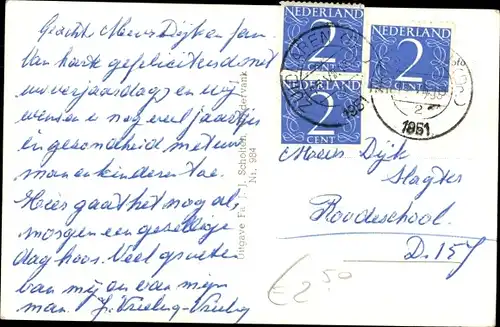 Geachte Mevr Dijk en fam.
Van harte gefeliciteerd met
uw verjaardag en wij
wensen u nog veel jaartjes
in gezondheid met uw
man en kinderen toe.
Hier gaat het nog al,
morgen een gezellige
dag hoor. Veel groeten
van mij en van mijn
man.
Uitgave Fa. J. J. Scholtens
Nr. 984
NEDERLAND
2
CENT
NEDERLAND
2
CENT
NEDERLAND
2
CENT
1951
2
1951
Mevr. Dijk
Slagter
Roodeschool.
D. 157
€ 2.50